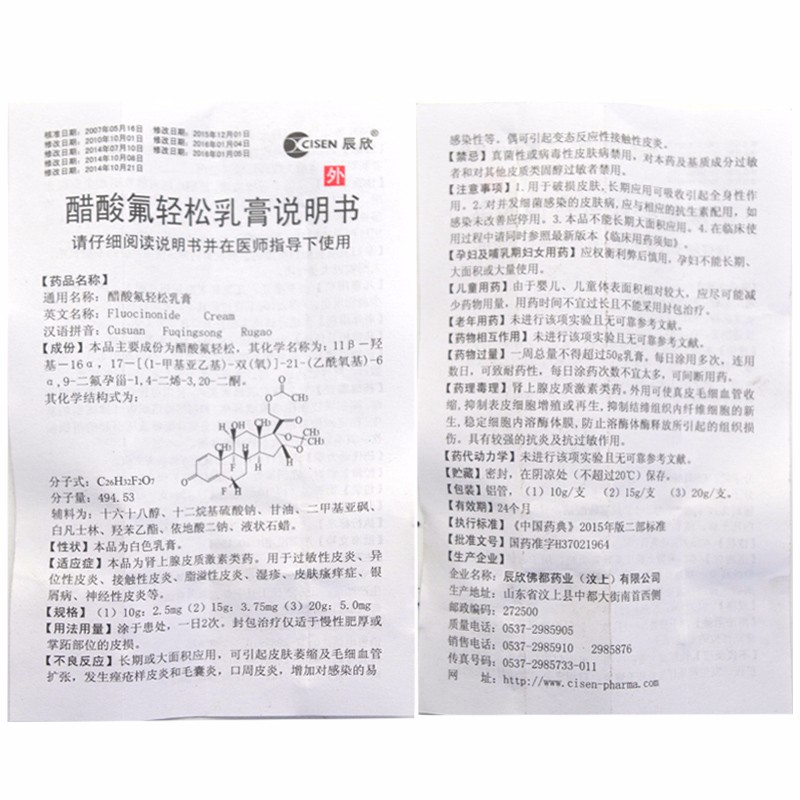 核准日期：2007年05月16日 修改日期：2015年12月01日
修改日期：2010年10月01日 修改日期：2016年01月04日
修改日期：2014年07月10日 修改日期：2016年01月05日
修改日期：2014年10月08日
修改日期：2014年10月21日
CISEN 辰欣®
外
醋酸氟轻松乳膏说明书
请仔细阅读说明书并在医师指导下使用
【药品名称】
通用名称：醋酸氟轻松乳膏
英文名称：Fluocinonide Cream
汉语拼音：Cusuan Fuqingsong Rugao
【成份】本品主要成份为醋酸氟轻松，其化学名称为：11β-羟
基-16α，17-[(1-甲基亚乙基)-双(氧)]-21-(乙酰氧基)-6
α,9-二氟孕甾-1,4-二烯-3,20-二酮。
其化学结构式为：
分子式：C₂₆H₃₂F₂O₇
分子量：494.53
辅料为：十六十八醇、十二烷基硫酸钠、甘油、二甲基亚砜、
白凡士林、羟苯乙酯、依地酸二钠、液状石蜡。
【性状】本品为白色乳膏。
【适应症】本品为肾上腺皮质激素类药。用于过敏性皮炎、异
位性皮炎、接触性皮炎、脂溢性皮炎、湿疹、皮肤瘙痒症、银
屑病、神经性皮炎等。
【规格】（1）10g：2.5mg（2）15g：3.75mg（3）20g：5.0mg
【用法用量】涂于患处，一日2次。封包治疗仅适于慢性肥厚或
掌跖部位的皮损。
【不良反应】长期或大面积应用，可引起皮肤萎缩及毛细血管
扩张，发生痤疮样皮炎和毛囊炎，口周皮炎，增加对感染的易
感染性等。偶可引起变态反应性接触性皮炎。
【禁忌】真菌性或病毒性皮肤病禁用，对本药及基质成分过敏
者和对其他皮质类固醇过敏者禁用。
【注意事项】1.用于破损皮肤,长期应用可吸收引起全身性作
用。2.对并发细菌感染的皮肤,应与相应的抗生素配用，如
感染未改善应停用。3.本品不能长期大面积应用。4.在临床使
用过程中请同时参照最新版本《临床用药须知》。
【孕妇及哺乳期妇女用药】应权衡利弊后慎用，孕妇不能长期、
大面积或大量使用。
【儿童用药】由于婴儿、儿童体表面积相对较大，应尽可能减
少药物用量，用药时间不宜过长且不能采用封包治疗。
【老年用药】未进行该项实验且无可靠参考文献。
【药物相互作用】未进行该项实验且无可靠参考文献。
【药物过量】一周总量不得超过50g乳膏。每日涂用多次，连用
数日，可致耐药性，每日涂药次数不宜太多，可间断用药。
【药理毒理】肾上腺皮质激素类药。外用可使真皮毛细血管收
缩,抑制表皮细胞增殖或再生,抑制结缔组织内纤维细胞的新
生,稳定细胞内溶酶体膜,防止溶酶体酶释放所引起的组织损
伤。具有较强的抗炎及抗过敏作用。
【药代动力学】未进行该项实验且无可靠参考文献。
【贮藏】密封，在阴凉处（不超过20℃）保存。
【包装】铝管，（1）10g/支 （2）15g/支 （3）20g/支。
【有效期】24个月
【执行标准】《中国药典》2015年版二部标准
【批准文号】国药准字H37021964
【生产企业】
企业名称：辰欣佛都药业（汶上）有限公司
生产地址：山东省汶上县中都大街南首西侧
邮政编码：272500
质量电话：0537-2985905
销售电话：0537-2985910 2985876
传真号码：0537-2985733-011
网 址：http://www.cisen-pharma.com